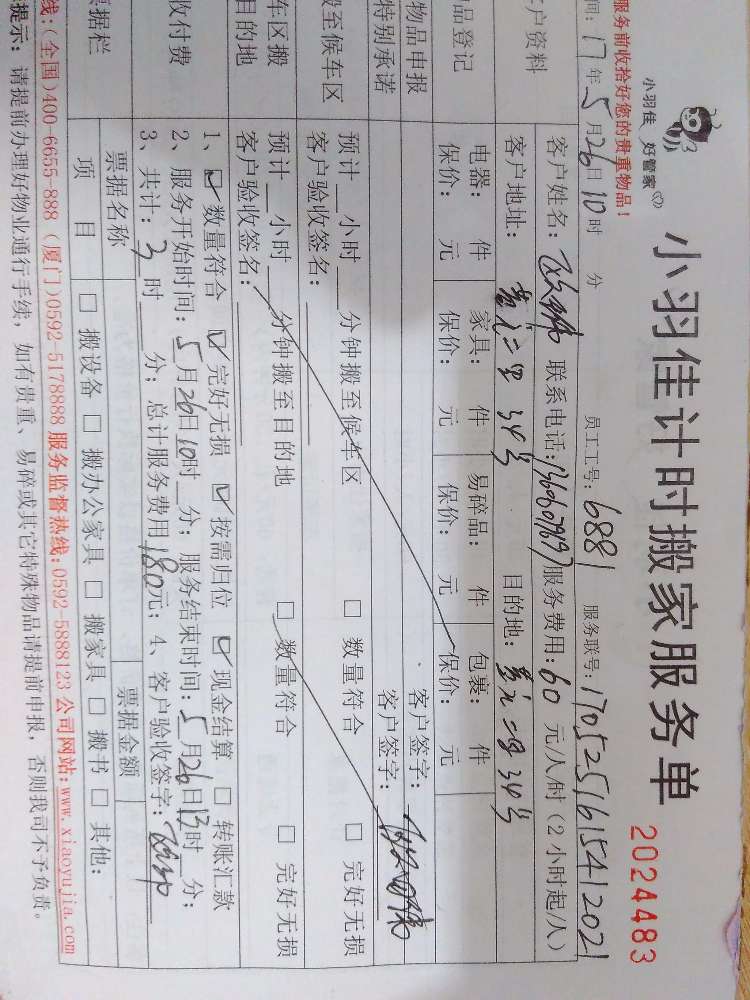 小羽佳 好管家
小羽佳计时搬家服务单
2024483
服务前收拾好您的贵重物品!
间: 17年5月26日10时 分 员工工号: 6881 服务联号: 1705251615412021
客户资料 客户姓名: 联系电话: 13606079697 服务费用: 60 元/人/时(2小时起/人)
客户地址: 黄厝二里34号 目的地:
品登记 电器: 件 家具: 件 易碎品: 件 包裹: 件
保价: 元 保价: 元 保价: 元 保价: 元
物品申报 客户签字:
特别承诺 客户签字:
至候车区 预计 小时 分钟搬至候车区 □ 数量符合 □ 完好无损
客户验收签名:
车区搬 预计 小时 分钟搬至目的地 □ 数量符合 □ 完好无损
目的地 客户验收签名:
收付费 1、☑ 数量符合 ☑ 完好无损 ☑ 按需归位 ☑ 现金结算 □ 转账汇款
2、服务开始时间: 5月26日10时 分; 服务结束时间: 5月26日13时 分;
3、共计: 3 时 分; 总计服务费用180元; 4、客户验收签字:
据栏 票据名称 票据金额
项 目 □ 搬设备 □ 搬办公家具 □ 搬家具 □ 搬书 □ 其他:
线:(全国)400-6655-888 (厦门)0592-5178888 服务监督热线:0592-5888123 公司网站:www.xiaoyujia.com
提示: 请提前办理好物业通行手续, 如有贵重、易碎或其它特殊物品请提前申报, 否则我司不予负责。